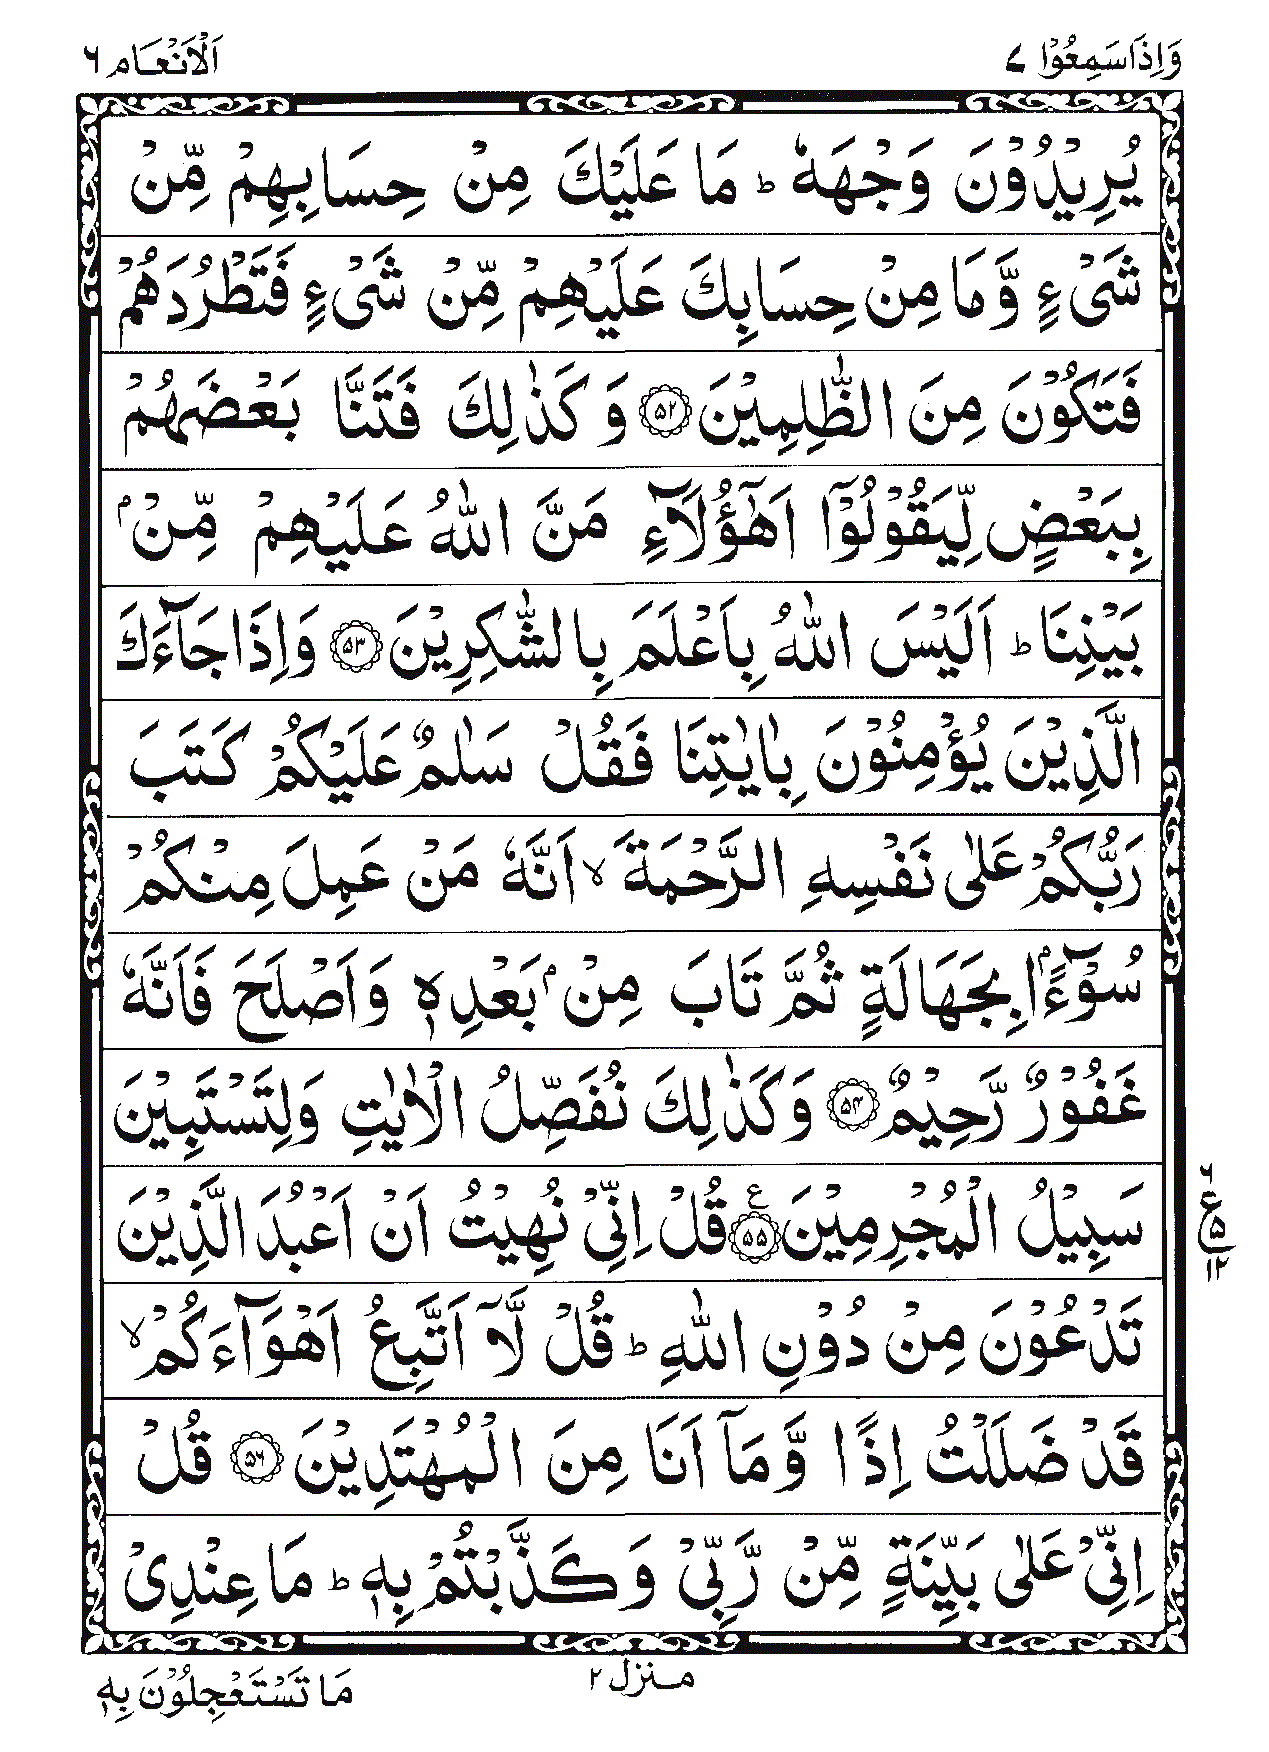 وَاِذَاسَمِعُوۡا ۷
اَلۡاَنۡعَام ۶
يُرِيۡدُوۡنَ وَجۡهَهٗ ؕ مَا عَلَيۡكَ مِنۡ حِسَابِهِمۡ مِّنۡ
شَىۡءٍ وَّمَا مِنۡ حِسَابِكَ عَلَيۡهِمۡ مِّنۡ شَىۡءٍ فَتَطۡرُدَهُمۡ
فَتَكُوۡنَ مِنَ الظّٰلِمِيۡنَ ﴿۵۲﴾ وَ كَذٰلِكَ فَتَنَّا بَعۡضَهُمۡ
بِبَعۡضٍ لِّيَقُوۡلُوۡۤا اَهٰٓؤُلَآءِ مَنَّ اللّٰهُ عَلَيۡهِمۡ مِّنۡۢ
بَيۡنِنَا ؕ اَلَيۡسَ اللّٰهُ بِاَعۡلَمَ بِالشّٰكِرِيۡنَ ﴿۵۳﴾ وَاِذَا جَآءَكَ
الَّذِيۡنَ يُؤۡمِنُوۡنَ بِاٰيٰتِنَا فَقُلۡ سَلٰمٌ عَلَيۡكُمۡ كَتَبَ
رَبُّكُمۡ عَلٰى نَفۡسِهِ الرَّحۡمَةَ ۙ اَنَّهٗ مَنۡ عَمِلَ مِنۡكُمۡ
سُوۡٓءًۢا بِجَهَالَةٍ ثُمَّ تَابَ مِنۡۢ بَعۡدِهٖ وَاَصۡلَحَ فَاَنَّهٗ
غَفُوۡرٌ رَّحِيۡمٌ ﴿۵۴﴾ وَكَذٰلِكَ نُفَصِّلُ الۡاٰيٰتِ وَلِتَسۡتَبِيۡنَ
سَبِيۡلُ الۡمُجۡرِمِيۡنَ ﴿۵۵﴾ ع قُلۡ اِنِّىۡ نُهِيۡتُ اَنۡ اَعۡبُدَ الَّذِيۡنَ
۶
ع ۵
۱۲
تَدۡعُوۡنَ مِنۡ دُوۡنِ اللّٰهِ ؕ قُلۡ لَّاۤ اَتَّبِعُ اَهۡوَآءَكُمۡ ۙ
قَدۡ ضَلَلۡتُ اِذًا وَّمَاۤ اَنَا مِنَ الۡمُهۡتَدِيۡنَ ﴿۵۶﴾ قُلۡ
اِنِّىۡ عَلٰى بَيِّنَةٍ مِّنۡ رَّبِّىۡ وَ كَذَّبۡتُمۡ بِهٖ ؕ مَا عِنۡدِىۡ
منزل ۲
مَا تَسۡتَعۡجِلُوۡنَ بِهٖ